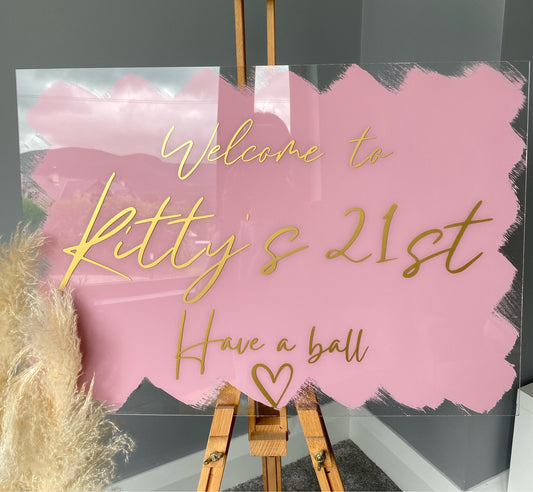 Welcome to
Kitty's 21st
Have a ball